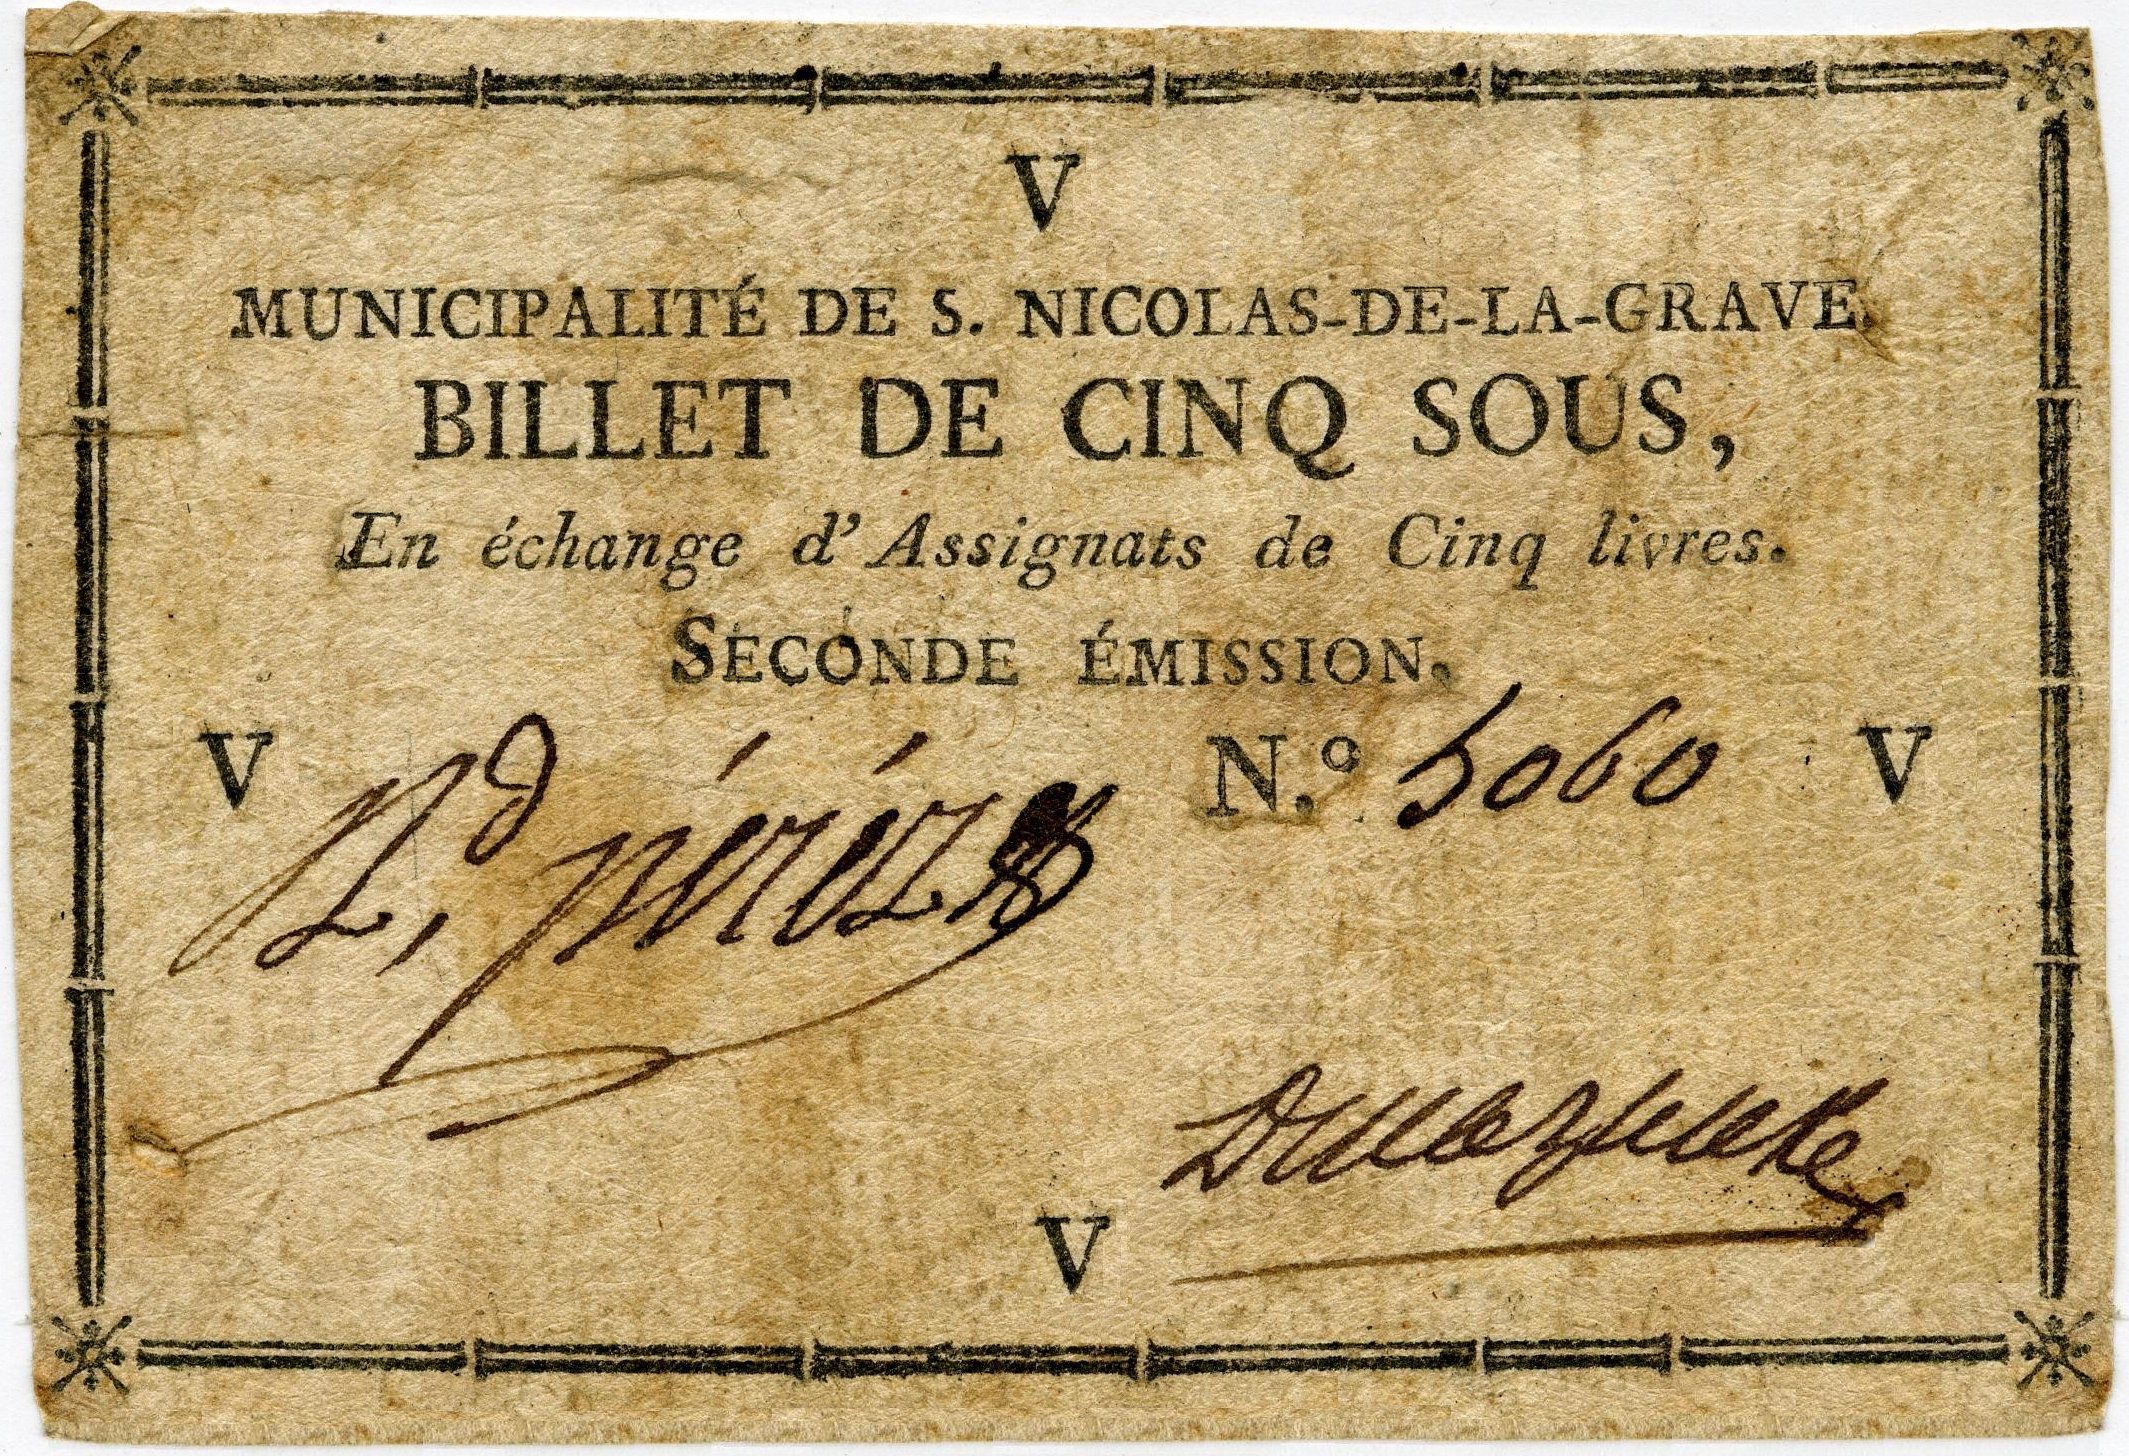 V
MUNICIPALITÉ DE S. NICOLAS-DE-LA-GRAVE.
BILLET DE CINQ SOUS,
En échange d'Assignats de Cinq livres.
SECONDE ÉMISSION.
V N.º 5060 V
pérés
V